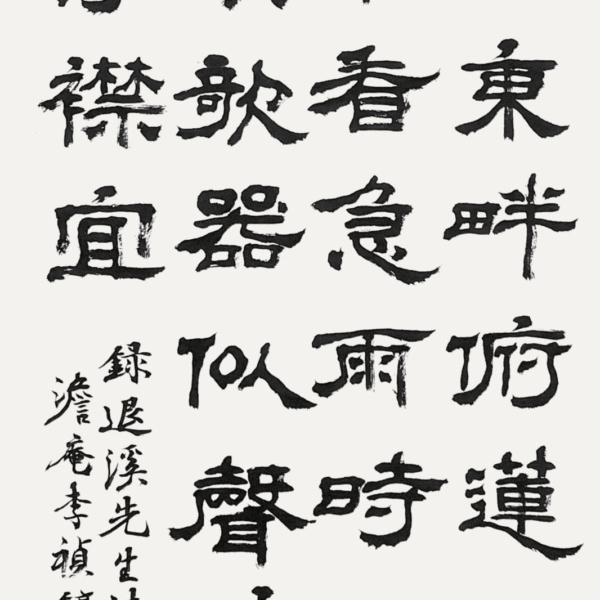 東畔俯蓮
看急雨時
歌器似聲
襟宜
錄退溪先生
澹庵李禎